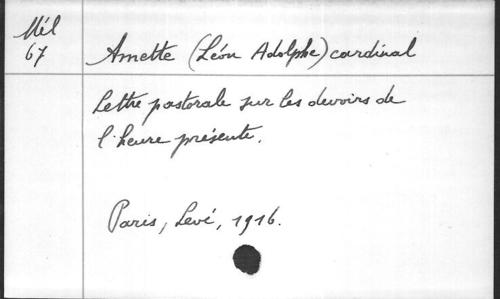 Mél
67
Amette (Léon Adolphe) cardinal
Lettre pastorale sur les devoirs de
l'heure présente.
Paris, Levé, 1916.